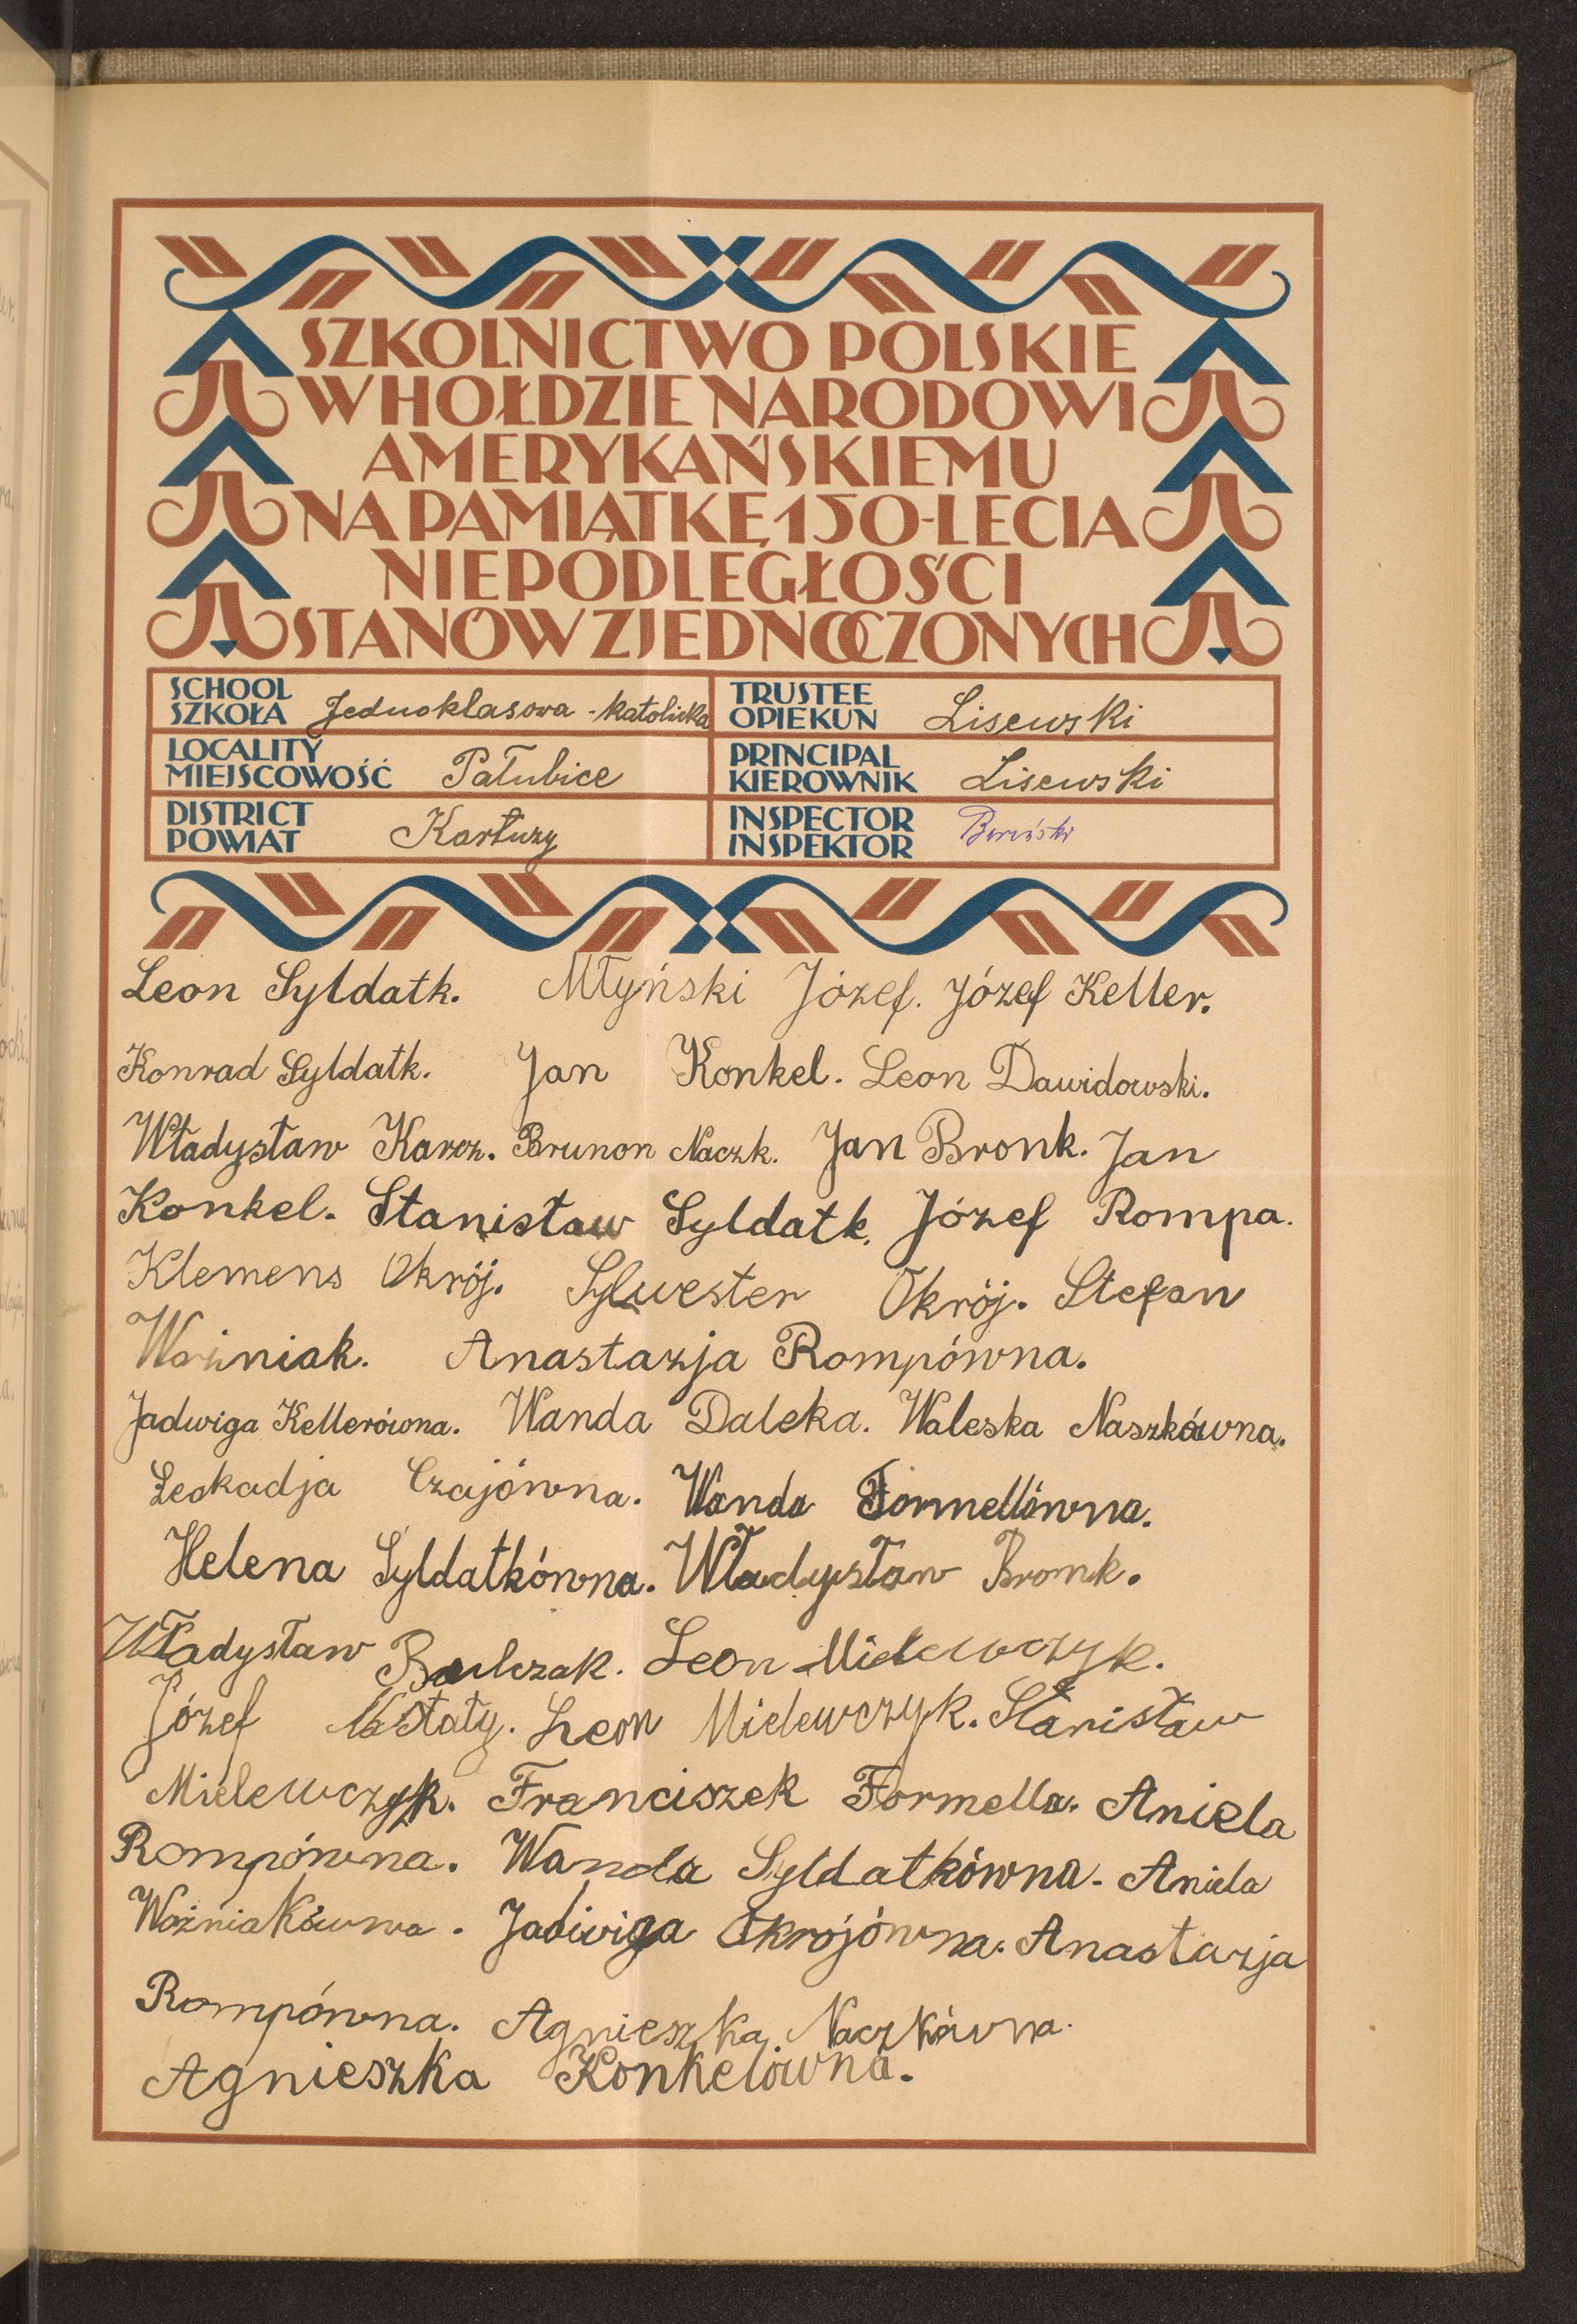 SZKOLNICTWO POLSKIE
W HOŁDZIE NARODOWI
AMERYKAŃSKIEMU
NA PAMIĄTKĘ 150-LECIA
NIEPODLEGŁOŚCI
STANÓW ZJEDNOCZONYCH
SCHOOL
SZKOŁA Jednoklasowa-katolicka
TRUSTEE
OPIEKUN Lisewski
LOCALITY
MIEJSCOWOŚĆ Pałubice
PRINCIPAL
KIEROWNIK Lisewski
DISTRICT
POWIAT Kartuzy
INSPECTOR
INSPEKTOR
Leon Syldatk. Młyński Józef. Józef Keller.
Konrad Syldatk. Jan Konkel. Leon Dawidowski.
Władysław Karcz. Brunon Naczk. Jan Bronk. Jan
Konkel. Stanisław Syldatk. Józef Rompa.
Klemens Okrój. Sylwester Okrój. Stefan
Woźniak. Anastazja Rompówna.
Jadwiga Kellerówna. Wanda Daleka. Waleska Naszkówna.
Leokadja Czajówna. Wanda Formellówna.
Helena Syldatkówna. Władysław Bronk.
Władysław Leon Mielewczyk.
Józef Leon Mielewczyk. Stanisław
Mielewczyk. Franciszek Formella. Aniela
Rompówna. Wanda Syldatkówna. Aniela
Woźniakówna. Jadwiga Okrojówna. Anastazja
Rompówna. Agnieszka Naczkówna.
Agnieszka Konkelówna.